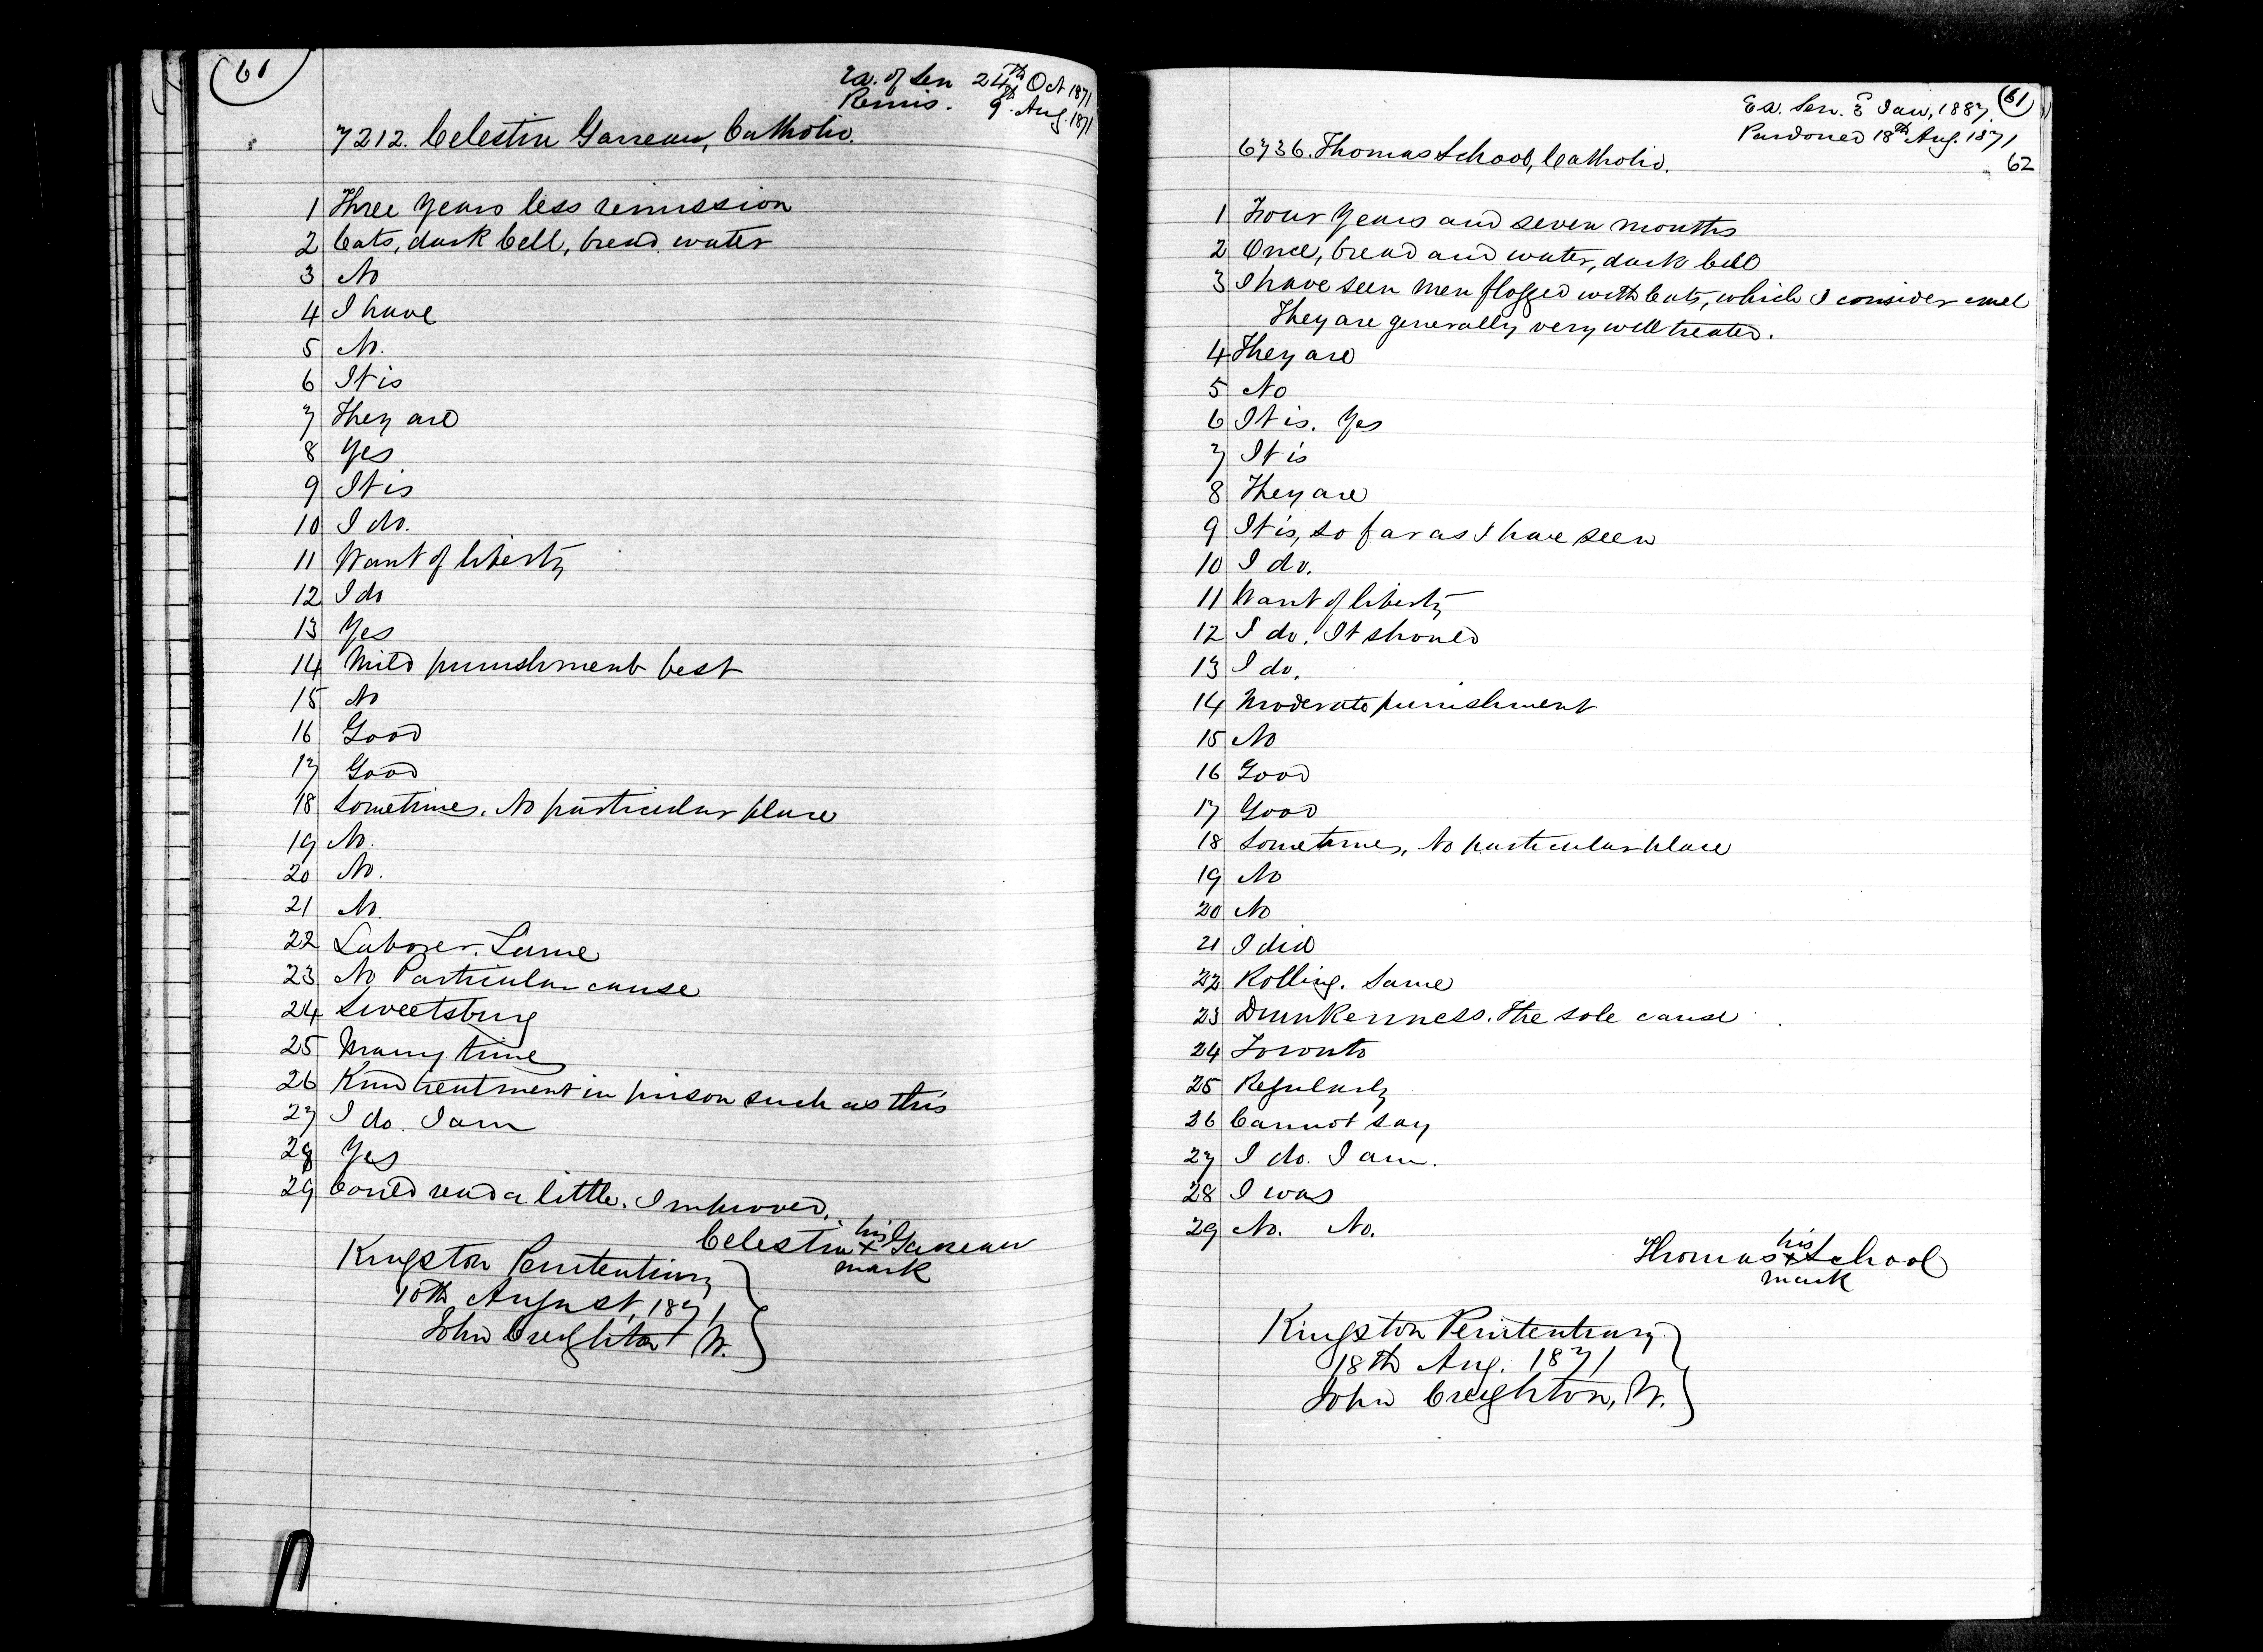 61
Ex. of Sen 24th Oct 1871
Remis. 9th Aug. 1871
7212. Celestin Garreau, Catholic.
1 Three years less remission
2 Cats, dark Cell, bread water
3 No
4 I have
5 No.
6 It is
7 They are
8 Yes
9 It is
10 I do.
11 Want of liberty
12 I do
13 Yes
14 Mild punishment best
15 No
16 Good
17 Good
18 Sometimes. No particular place
19 No.
20 No.
21 No
22 Laborer. Same
23 No Particular cause
24 Sweetsburg
25 Many time
26 Kind treatment in prison such as this
27 I do. I am
28 Yes
29 Could read a little. Improved.
Celestin his x mark Garreau
Kingston Penitentiary
10th August, 1871
John Creighton W.
61
Ex. Sen. Jan, 1887.
Pardoned 18th Aug. 1871
62
6736. Thomas School, Catholic.
1 Four Years and seven months
2 Once, bread and water, dark Cell
3 I have seen men flogged with Cats, which I consider cruel
They are generally very well treated.
4 They are
5 No
6 It is. Yes
7 It is
8 They are
9 It is, so far as I have seen
10 I do.
11 Want of liberty
12 I do. It should
13 I do.
14 Moderate punishment
15 No
16 Good
17 Good
18 Sometimes, No particular place
19 No
20 No
21 I did
22 Rolling. Same
23 Drunkenness. The sole cause
24 Toronto
25 Regularly
26 Cannot say
27 I do. I am.
28 I was
29 No. No.
Thomas his x mark School
Kingston Penitentiary
18th Aug. 1871
John Creighton, W.